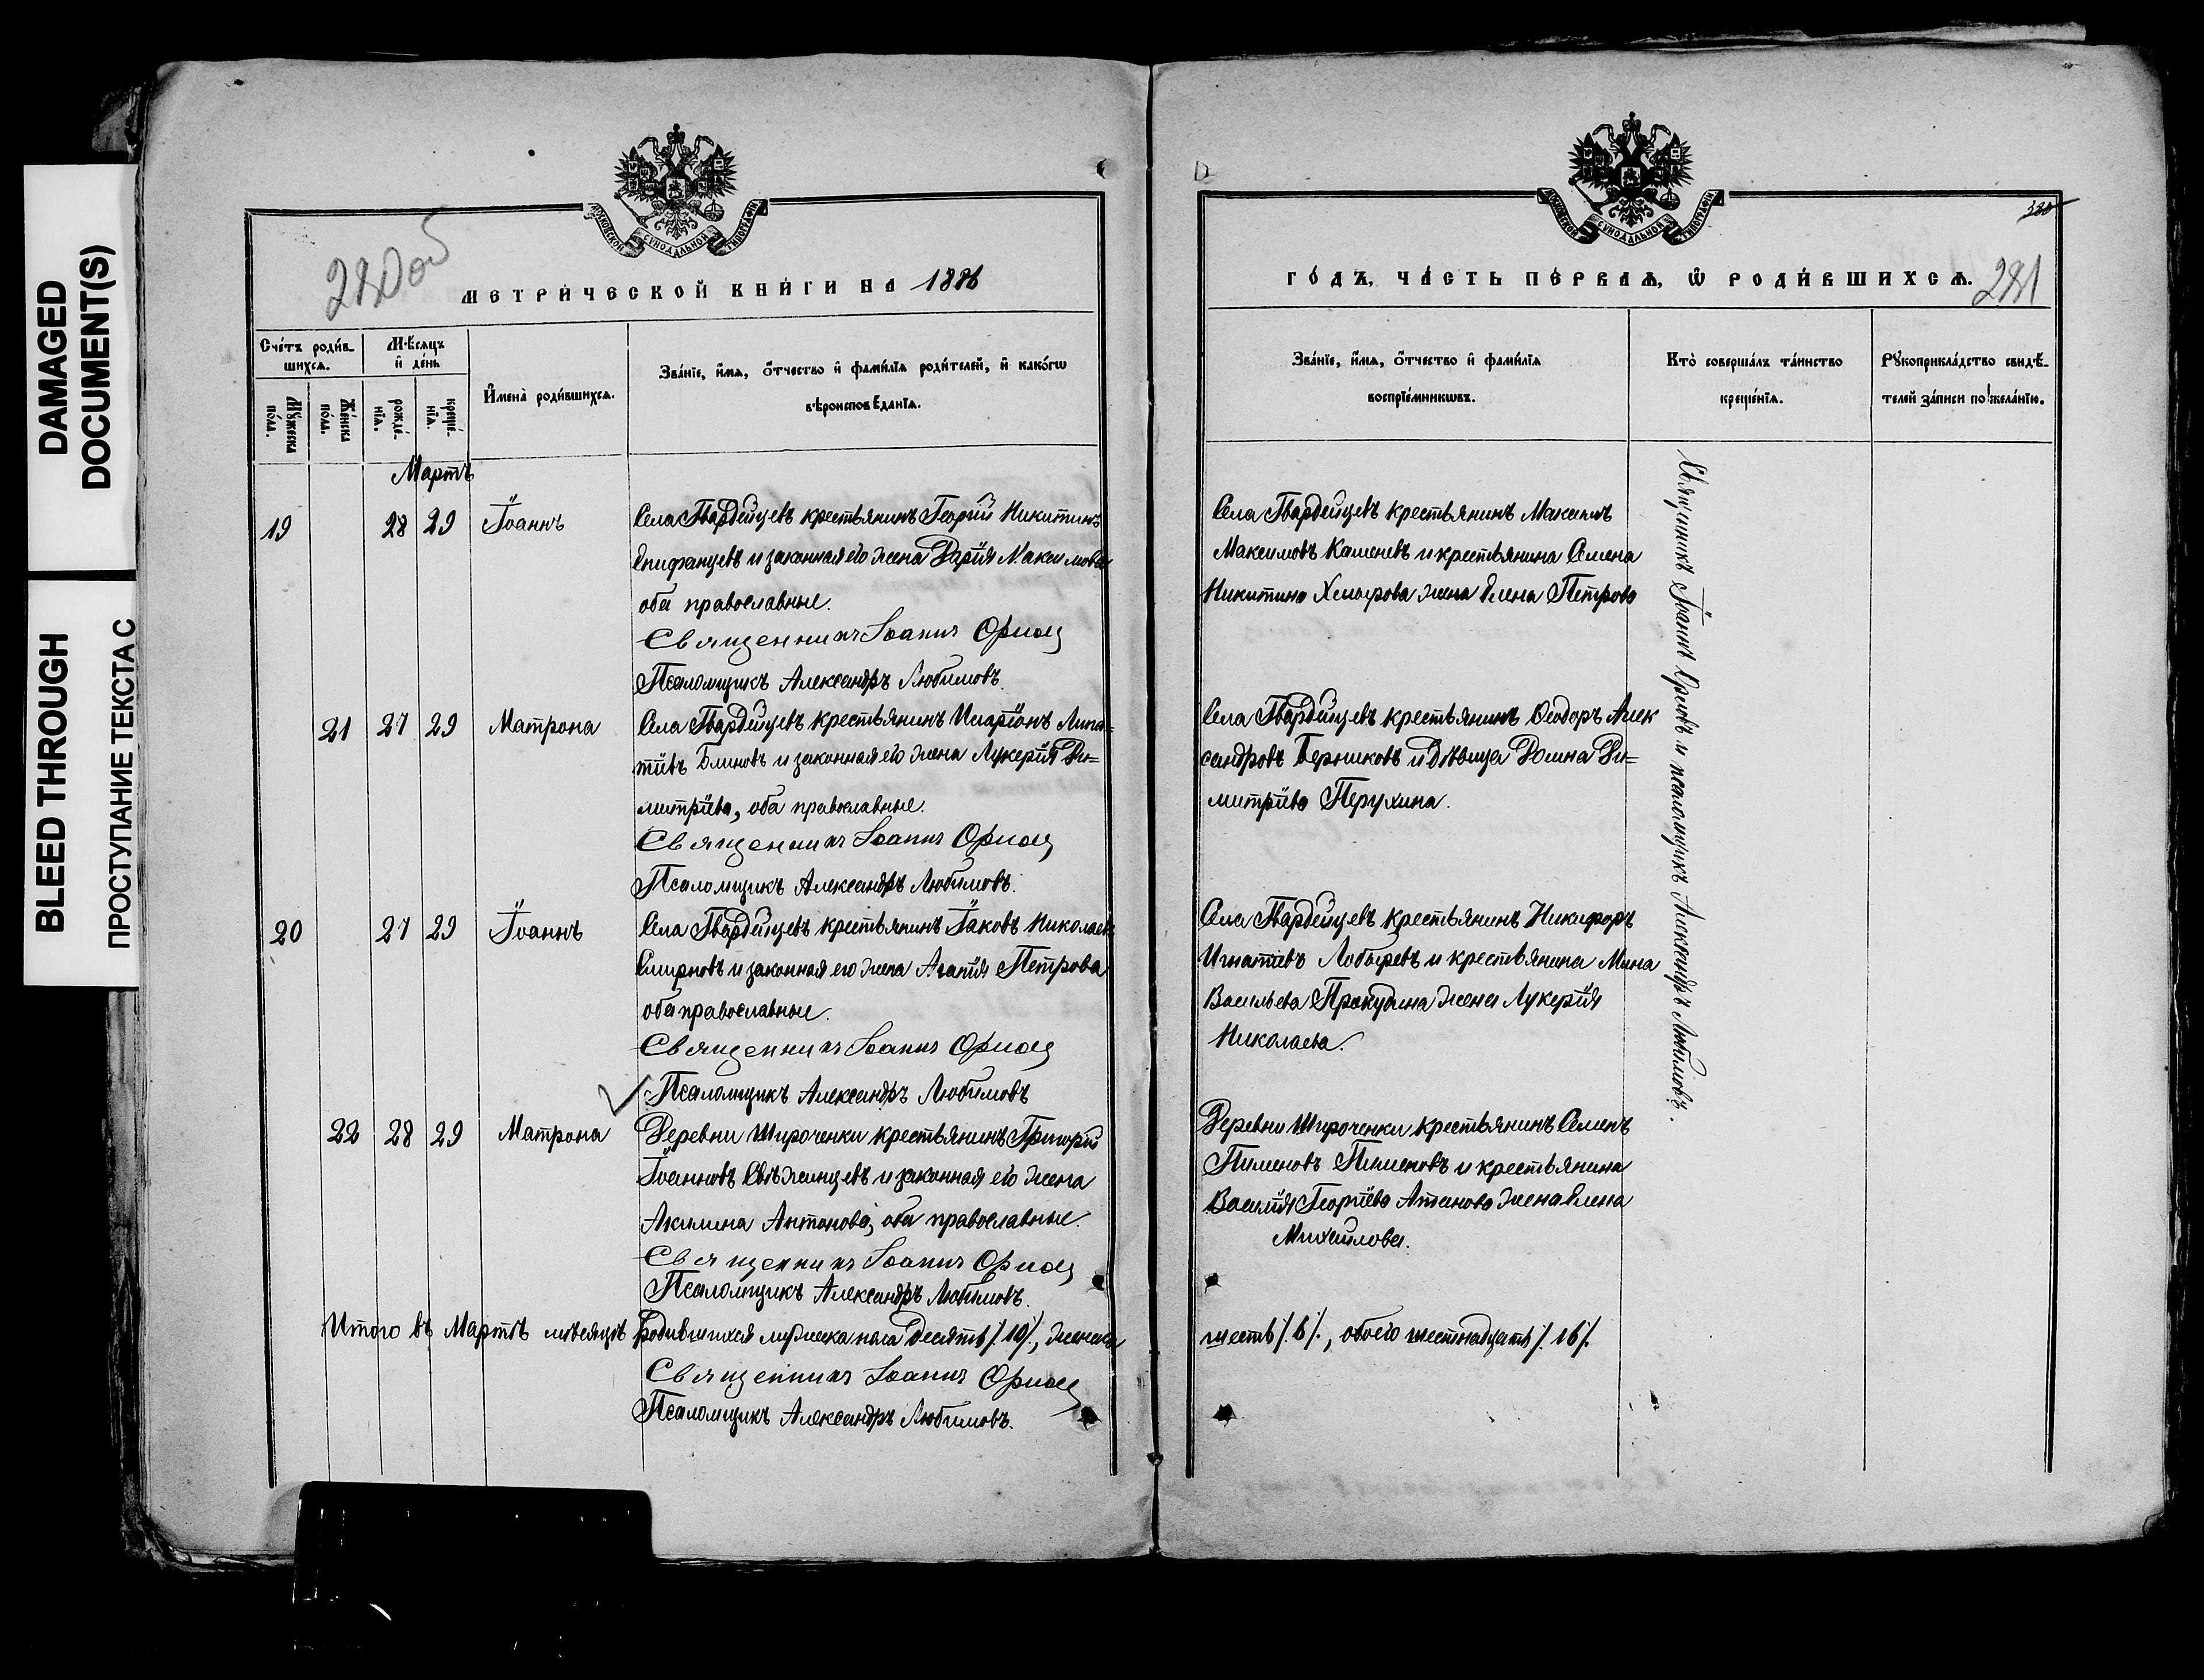 DAMAGED
DOCUMENT(S)
BLEED THROUGH
ПРОСТУПАНИЕ ТЕКСТА С
МОСКОВСКОЙ СѴНОДАЛЬНОЙ ТИПОГРАФІИ
280об
МЕТРИ́ЧЕСКОЙ КНИ́ГИ НА 1886
Сче́тъ роди́в-
шихсѧ.
Мѣ́сяцъ
и҆ де́нь
И҆мена̀ роди́вшихсѧ.
Зва́нїе, и҆́мѧ, ѻ҆́тчество и҆ фами́лїѧ роди́телей, и҆ како́гѡ
вѣроисповѣ́данїѧ.
Мꙋ́жеска
по́ла.
Же́нска
по́ла.
рожде́-
нїѧ.
креще́-
нїѧ.
Мартъ
19 28 29 Іоаннъ
Села Гвардейцевъ крестьянинъ Георгій Никитинъ
Епифанцевъ и законная его жена Дарія Максимова
оба православные.
Священникъ Іоаннъ Орлов
Псаломщикъ Александръ Любимовъ.
21 27 29 Матрона
Села Гвардейцевъ крестьянинъ Иларіонъ Липа-
тіевъ Блиновъ и законная его жена Лукерія Ди=
митріева, оба православные.
Священникъ Іоаннъ Орлов
Псаломщикъ Александръ Любимовъ.
20 27 29 Іоаннъ
Села Гвардейцевъ крестьянинъ Іаковъ Николаевъ
Смирновъ и законная его жена Агапія Петрова
оба православные.
Священникъ Іоаннъ Орлов
Псаломщикъ Александръ Любимовъ
22 28 29 Матрона
Деревни Широченки крестьянинъ Григорій
Іоанновъ Свѣженцевъ и законная его жена
Акилина Антонова, оба православные.
Священникъ Іоаннъ Орлов
Псаломщикъ Александръ Любимовъ.
Итого въ Мартѣ мѣсяцѣ родившихся мужеска пола десять /.10/., женска
Священникъ Іоаннъ Орлов
Псаломщикъ Александръ Любимовъ.
МОСКОВСКОЙ СѴНОДАЛЬНОЙ ТИПОГРАФІИ
330
ГО́ДЪ, ЧА́СТЬ ПЕ́РВАѦ, Ѡ҆ РОДИ́ВШИХСѦ. 281
Зва́нїе, и҆́мѧ, ѻ҆́тчество и҆ фами́лїѧ
воспрїе́мникѡвъ.
Кто̀ соверша́лъ та́инство
креще́нїѧ.
Рꙋкоприкла́дство свидѣ́-
телей за́писи по жела́нїю.
Села Гвардейцевъ крестьянинъ Максимъ
Максимовъ Каменевъ и крестьянина Семена
Никитина Хмырова жена Елена Петрова
Села Гвардейцевъ крестьянинъ Ѳеодоръ Алек
сандровъ Берниковъ и дѣвица Домна Ди=
митріева Перухина.
Села Гвардейцевъ крестьянинъ Никифоръ
Игнатіевъ Лобыревъ и крестьянина Мина
Васильева Прокудина жена Лукерія
Николаева.
Деревни Широченки крестьянинъ Семенъ
Пименовъ Пименовъ и крестьянина
Василія Георгіева Атанова жена Елена
Михайлова.
шесть /.6/., обоего шестнадцать /.16/.
Священникъ Іоаннъ Орловъ и псаломщикъ Александръ Любимовъ.